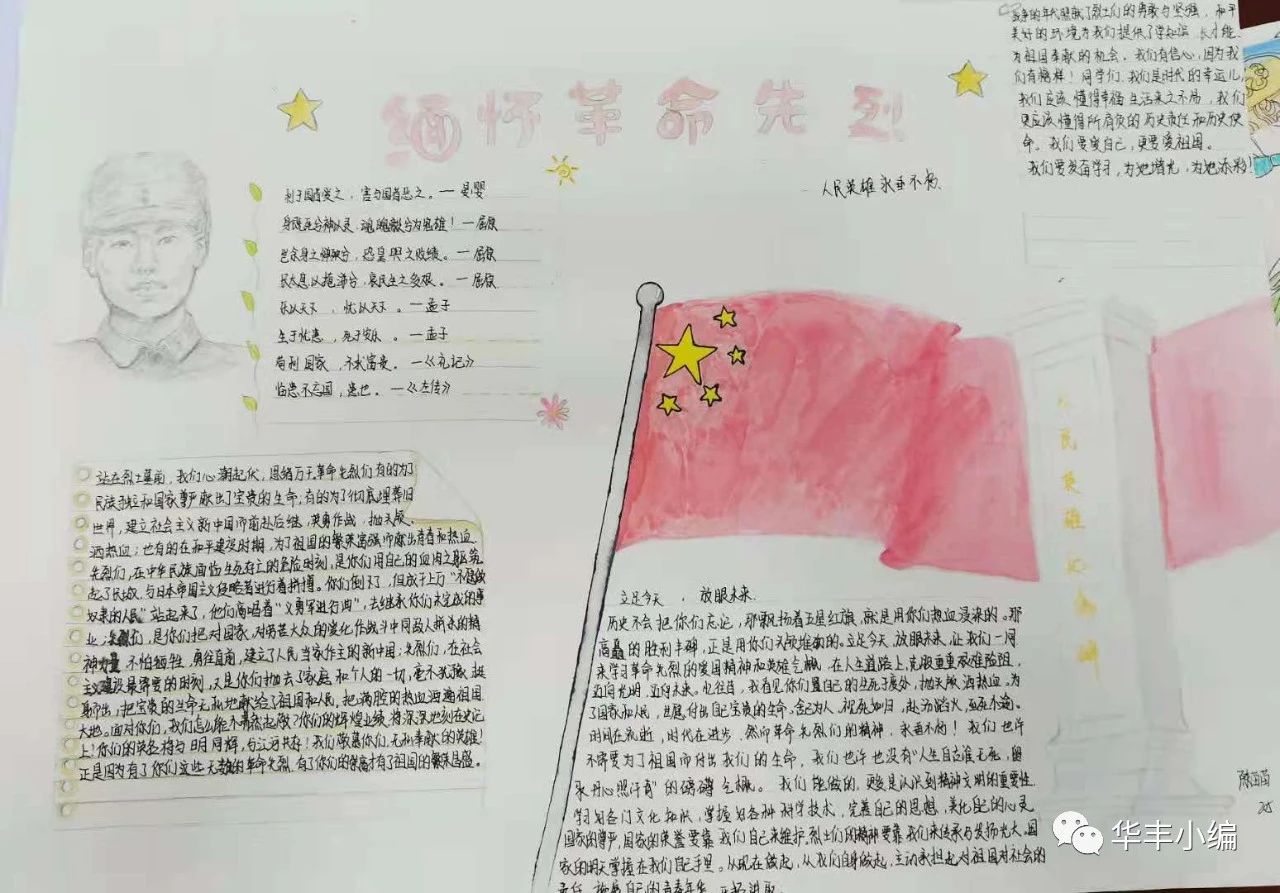 缅怀革命先烈
人民英雄永垂不朽
利于国者爱之，害于国者恶之。—晏婴
身既死兮神以灵，魂魄毅兮为鬼雄！—屈原
岂余身之惮殃兮，恐皇舆之败绩。—屈原
长太息以掩涕兮，哀民生之多艰。—屈原
乐以天下，忧以天下。—孟子
生于忧患，死于安乐。—孟子
苟利国家，不求富贵。—《礼记》
临患不忘国，忠也。—《左传》
战争的年代照献了烈士们的勇敢与坚强，和平
美好的环境为我们提供了学知识、长才能、
为祖国奉献的机会。我们有信心，因为我
们有榜样！同学们，我们是时代的幸运儿，
我们应该懂得幸福生活来之不易，我们
更应该懂得所肩负的历史责任和历史使
命。我们要爱自己，更要爱祖国。
我们要发奋学习，为她增光，为她添彩！
站在烈士墓前，我们心潮起伏，思绪万千。革命先烈们有的为了
民族独立和国家尊严献出了宝贵的生命，有的为了彻底埋葬旧
世界，建立社会主义新中国而前赴后继，英勇作战，抛头颅、
洒热血；也有的在和平建设时期，为了祖国的繁荣富强而献出青春和热血
先烈们，在中华民族面临生死存亡的危险时刻，是你们用自己的血肉之躯筑
起了长城，与日本帝国主义侵略者进行着拼搏。你们倒下了，但成千上万“不愿做
奴隶的人民”站起来了，他们高唱着“义勇军进行曲”，去继承你们未完成的事
业；先烈们，是你们把对国家，对劳苦大众的爱化作战斗中同敌人拼杀的精
神力量，不怕牺牲，勇往直前，建立了人民当家作主的新中国；先烈们，在社会
主义建设最需要的时刻，又是你们抛去了家庭和个人的一切，毫不犹豫，挺
身而出，把宝贵的生命无私地献给了祖国和人民，把满腔的热血洒遍祖国
大地。面对你们，我们怎么能不肃然起敬？你们的辉煌业绩，将深深地刻在史记
上！你们的英名将与日月同辉，与江河共存！我们敬慕你们，无私奉献的英雄！
正是因为有了你们这些无数的革命先烈，有了你们的崇高才有了祖国的繁荣昌盛。
立足今天，放眼未来.
历史不会把你们忘记，那飘扬着五星红旗，就是用你们热血浸染的。那
高矗的胜利丰碑，正是用你们头颅堆砌的。立足今天，放眼未来，让我们一同
来学习革命先烈的爱国精神和英雄气概，在人生道路上，克服重重艰难险阻，
迈向光明，迈向未来。忆往昔，我看见你们置自己的生死于度外，抛头颅洒热血。为
了国家和人民，且愿付出自己宝贵的生命。舍己为人，视死如归，赴汤蹈火，在所不辞。
时间在流逝，时代在进步，然而革命先烈们的精神，永垂不朽！我们也许
不需要为了祖国而付出我们的生命，我们也许也没有“人生自古谁无死，留
取丹心照汗青”的磅礴气概。我们能做的，更多是认识到精神文明的重要性
学习各门文化知识，掌握好各种科学技术，完善自己的思想，美化自己的心灵
国家的尊严，国家的荣誉要靠我们自己来维护，烈士们的精神要靠我们来传承与发扬光大。国
家的明天掌握在我们自己手里。从现在做起，从我们自身做起，主动承担起对祖国对社会的
责任，
人民英雄纪念碑
华丰小编